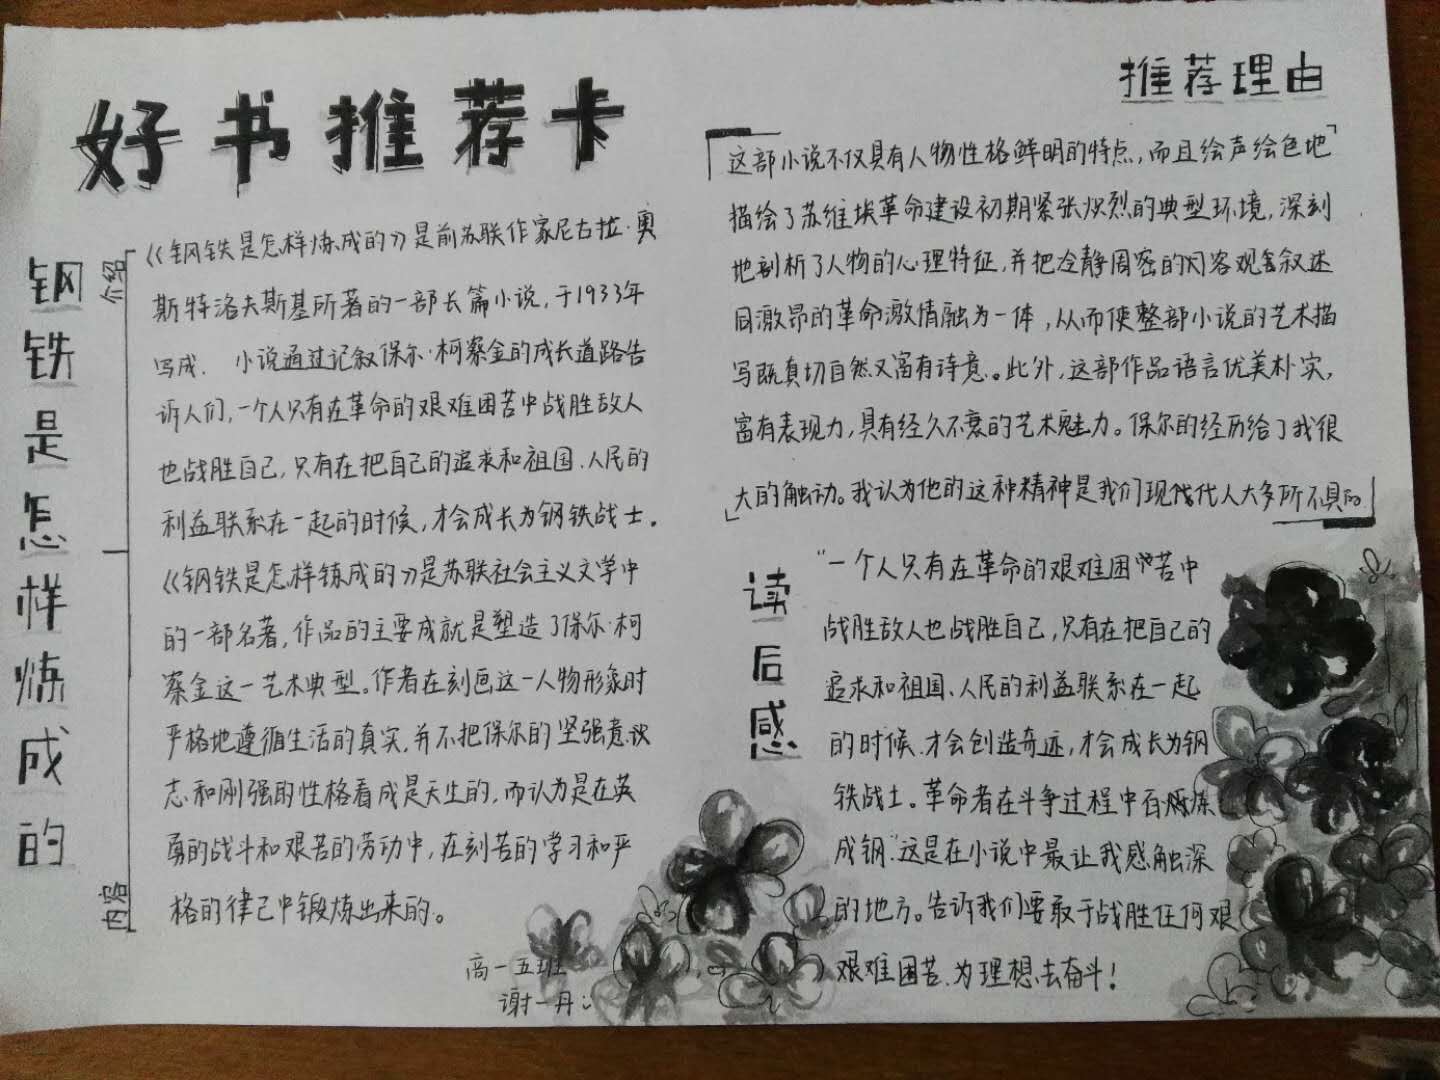 好书推荐卡
钢铁是怎样炼成的
介绍
内容
《钢铁是怎样炼成的》是前苏联作家尼古拉·奥
斯特洛夫斯基所著的一部长篇小说，于1933年
写成． 小说通过记叙保尔·柯察金的成长道路告
诉人们，一个人只有在革命的艰难困苦中战胜敌人
也战胜自己，只有在把自己的追求和祖国、人民的
利益联系在一起的时候，才会成长为钢铁战士。
《钢铁是怎样炼成的》是苏联社会主义文学中
的一部名著，作品的主要成就是塑造了保尔·柯
察金这一艺术典型。作者在刻画这一人物形象时
严格地遵循生活的真实，并不把保尔的坚强意识
志和刚强的性格看成是天生的，而认为是在英
勇的战斗和艰苦的劳动中，在刻苦的学习和严
格的律己中锻炼出来的。
高一五班
谢一丹
推荐理由
这部小说不仅具有人物性格鲜明的特点，而且绘声绘色地
描绘了苏维埃革命建设初期紧张炽烈的典型环境，深刻
地剖析了人物的心理特征，并把冷静周密的客观叙述
同激昂的革命激情融为一体，从而使整部小说的艺术描
写既真切自然又富有诗意。此外，这部作品语言优美朴实，
富有表现力，具有经久不衰的艺术魅力。保尔的经历给了我很
大的触动。我认为他的这种精神是我们现代人大多所不具的
读后感
“一个人只有在革命的艰难困苦中
战胜敌人也战胜自己，只有在把自己的
追求和祖国、人民的利益联系在一起
的时候，才会创造奇迹，才会成长为钢
铁战士。革命者在斗争过程中百炼
成钢”这是在小说中最让我感触深
的地方。告诉我们要敢于战胜任何艰
艰难困苦、为理想去奋斗！